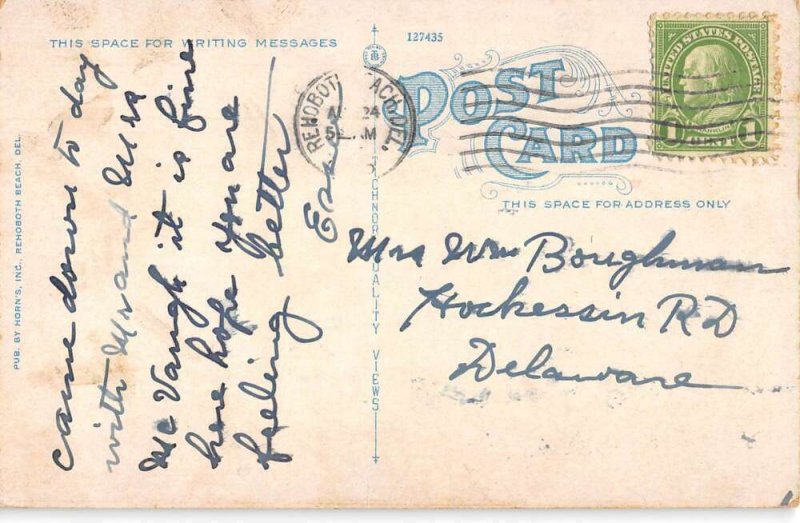 THIS SPACE FOR WRITING MESSAGES
127435
POST
CARD
REHOBOTH BEACH, DEL.
24
5 M
UNITED STATES POSTAGE
FRANKLIN
1 CENT 1
THIS SPACE FOR ADDRESS ONLY
came down to day
with Mr and Mrs
Mc Vaugh it is fine
here hope you are
feeling better
Mrs Wm Boughman
Hockessin RD
Delaware
PUB. BY HORN'S, INC., REHOBOTH BEACH, DEL.
TECHNOR QUALITY VIEWS